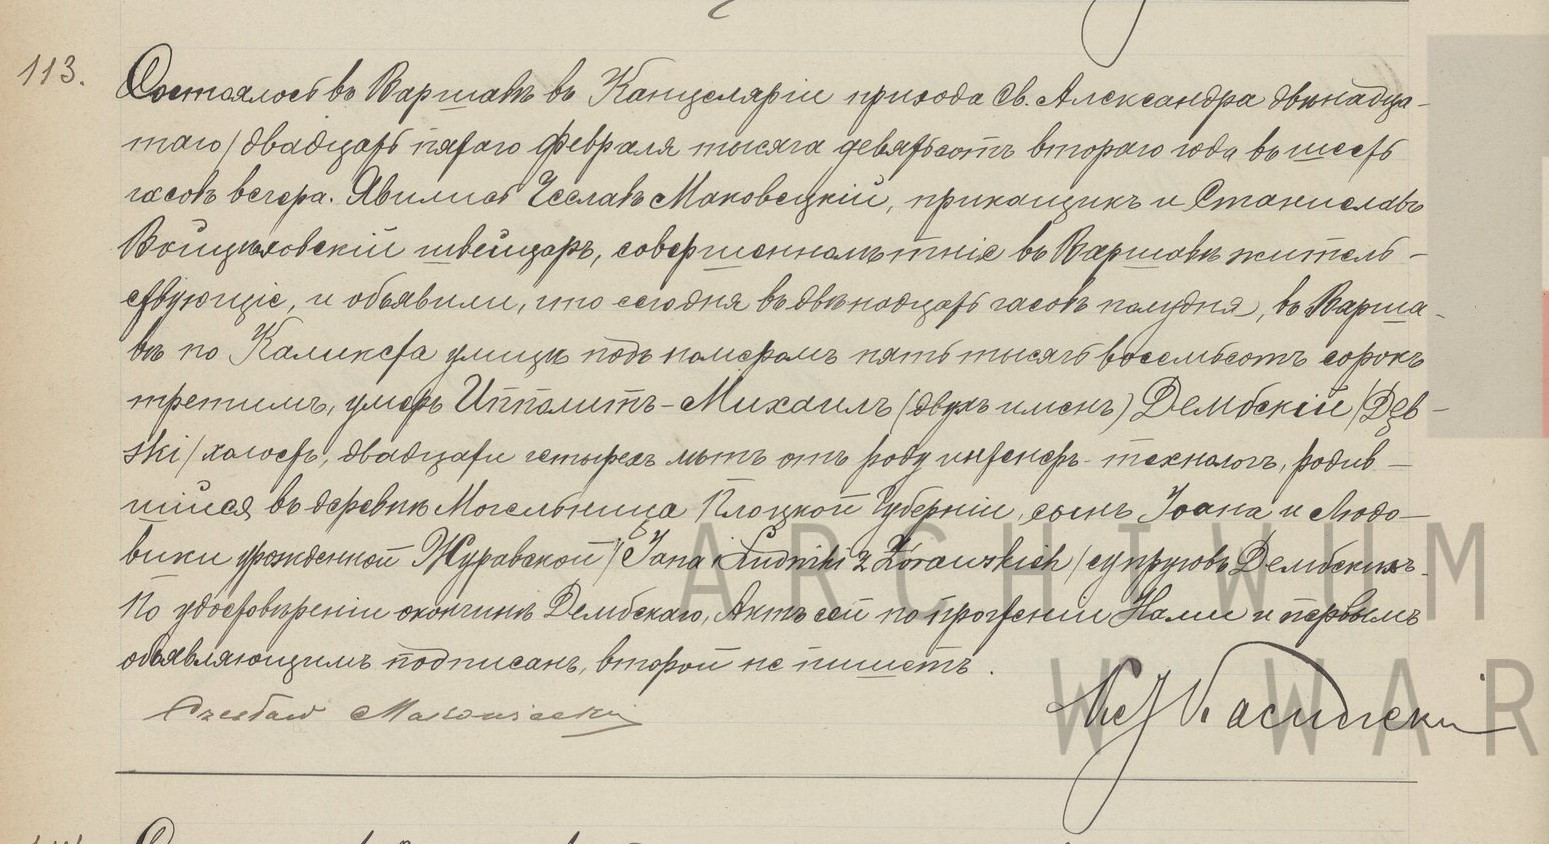 113.
Состоялось въ Варшавѣ въ Канцеляріи прихода Св. Александра двѣнадца-
таго / двадцать пятаго Февраля тысяча девятьсотъ втораго года въ шесть
часовъ вечера. Явились Чеславъ Маковецкій, прикащикъ и Станиславъ
Войцѣховскій швейцаръ, совершеннолѣтніе въ Варшавѣ житель-
ствующіе, и объявили, что сегодня въ двѣнадцать часовъ полудня, въ Варша-
вѣ по Каликста улицѣ подъ номеромъ пять тысячъ восемьсотъ сорокъ
третимъ, умеръ Ипполитъ-Михаилъ (двухъ именъ) Дембскій / Dęb-
ski / холостъ, двадцати четырехъ лѣтъ отъ роду инженеръ-технологъ, родив-
шійся въ деревнѣ Могельница Плоцкой Губерніи, сынъ Іоана и Людо-
вики урожденной Журавской / Jana i Ludwiki z Żórawskich / супруговъ Дембскихъ.
По удостовѣреніи о кончинѣ Дембскаго, Актъ сей по прочтеніи Нами и первымъ
объявляющимъ подписанъ, второй не пишетъ.
Czesław Makowiecki
ARCHIWUM
W WAR